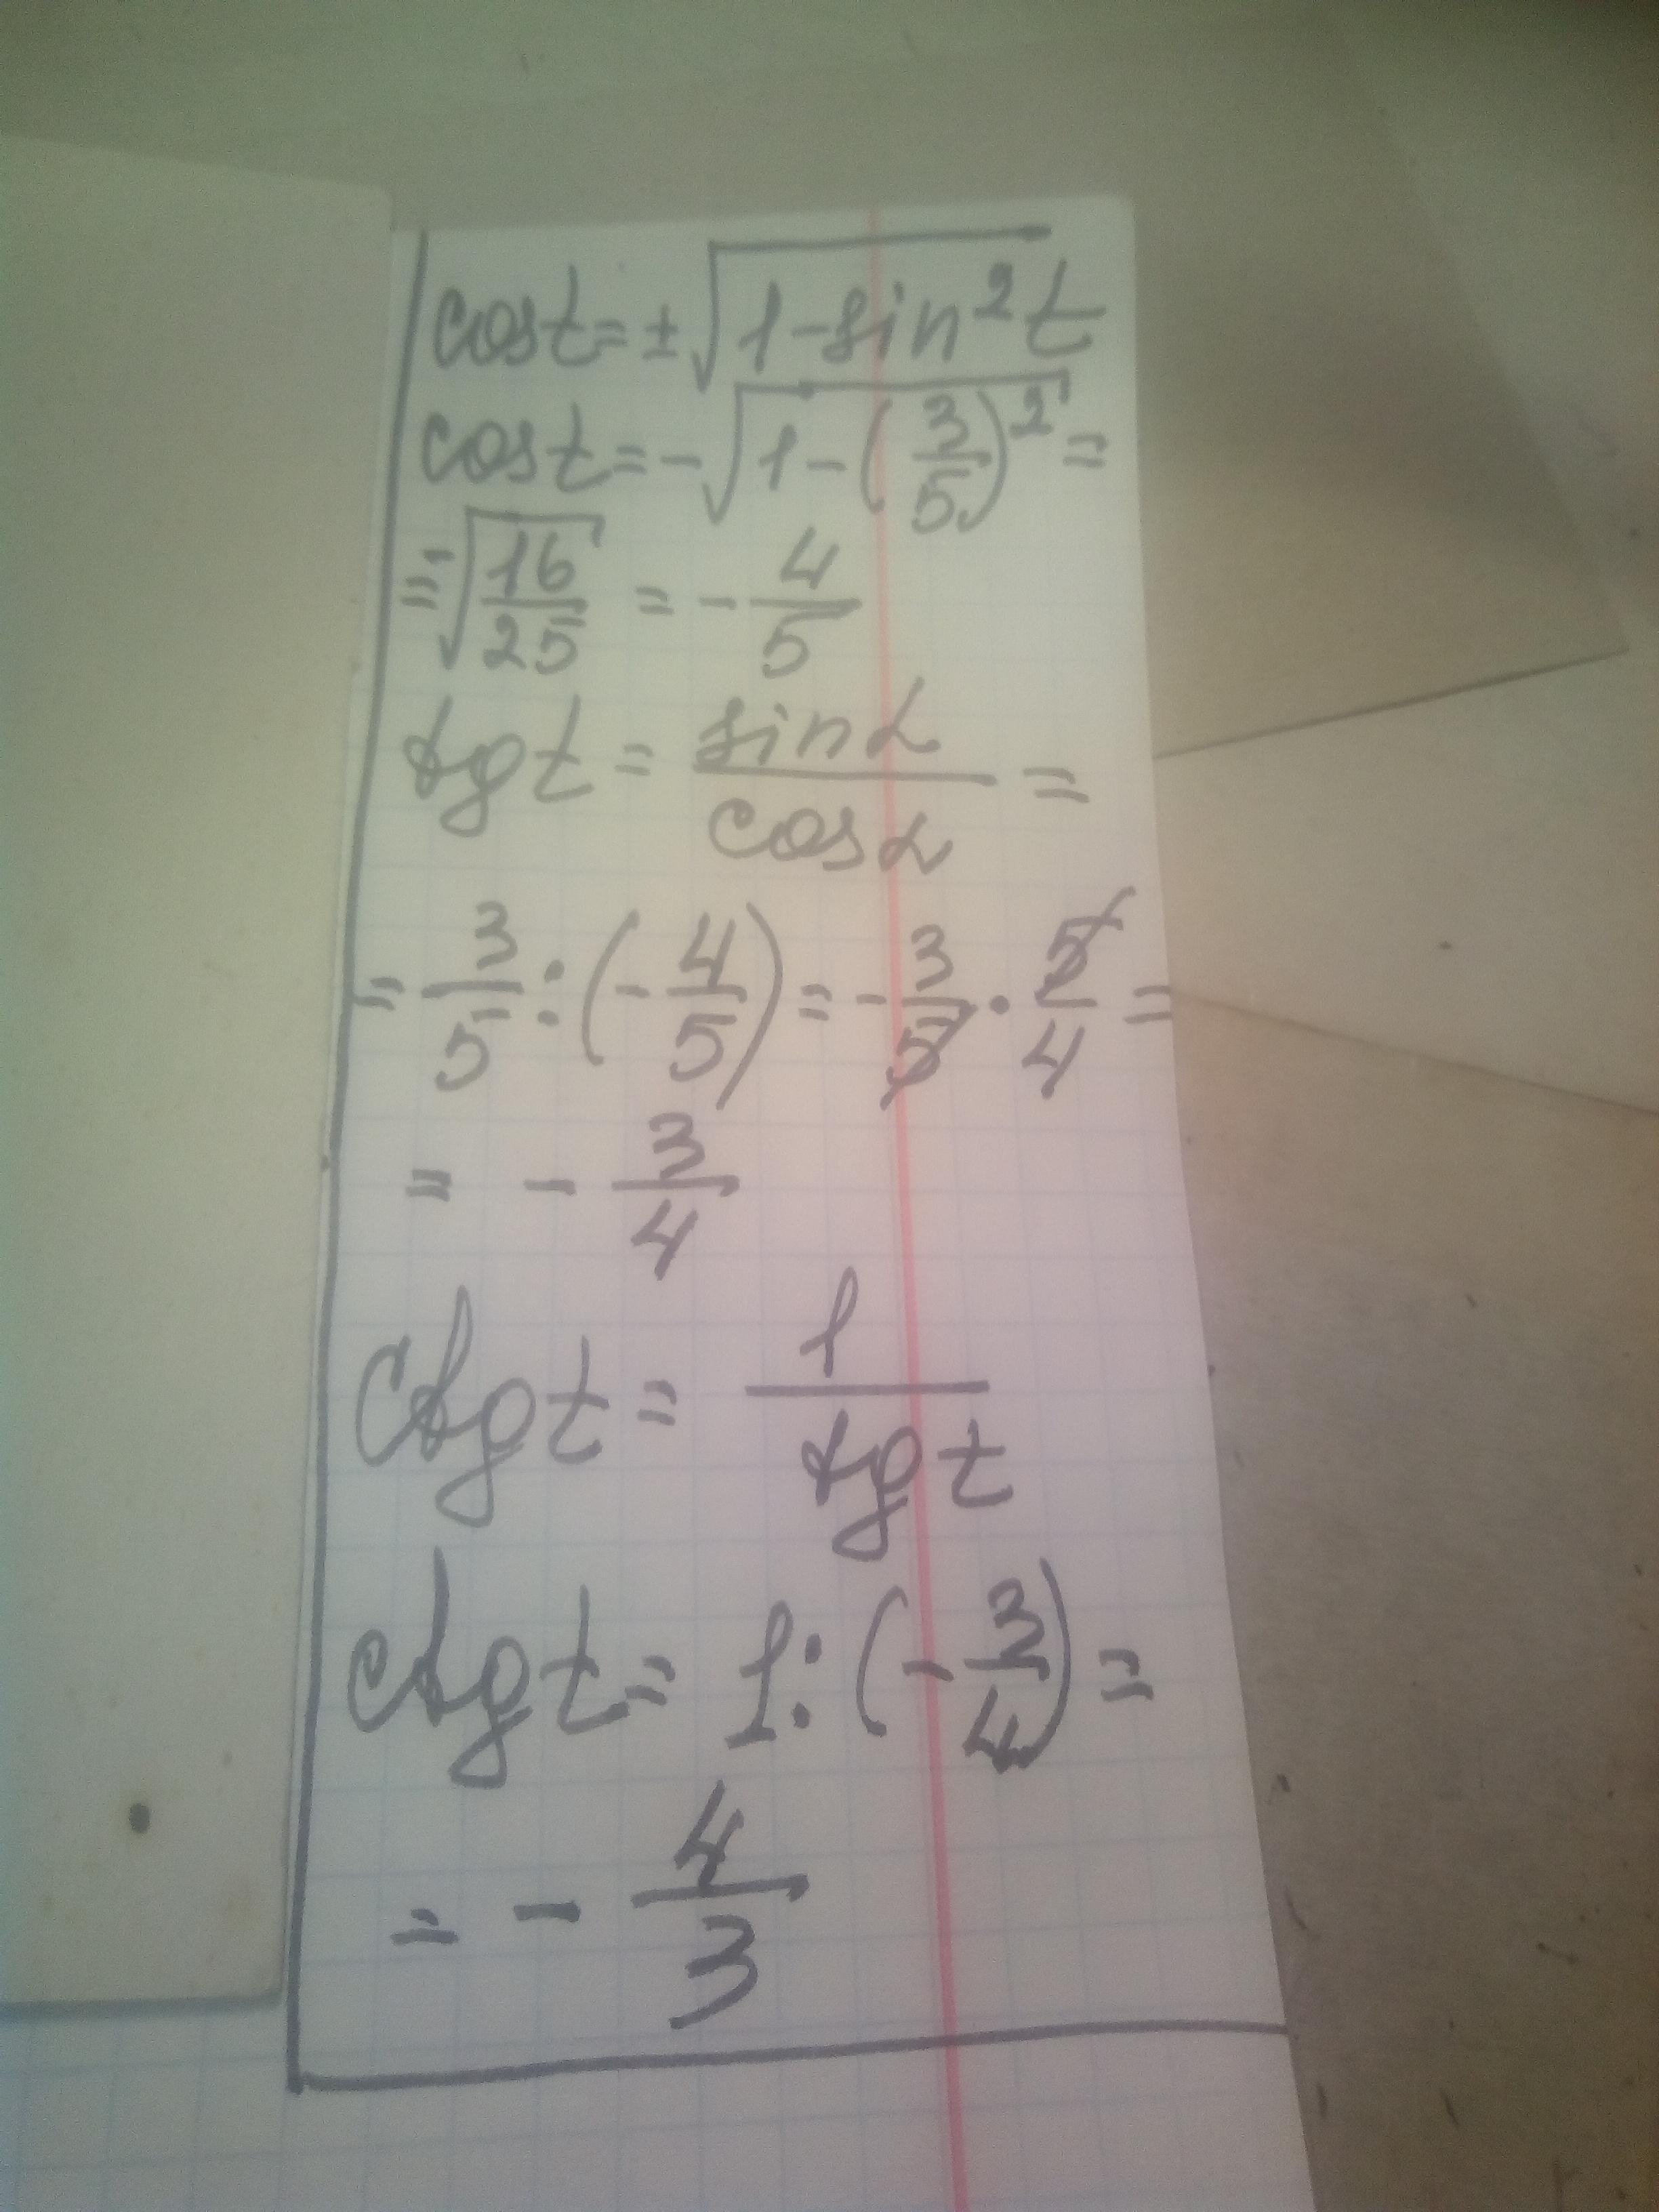 cost=±√1-sin²t
cost=-√1-(3/5)²=
=-√16/25 = -4/5
tgt = sinα/cosα =
=3/5:(-4/5)=-3/5·5/4=
= -3/4
ctgt= 1/tgt
ctgt= 1:(-3/4)=
= -4/3